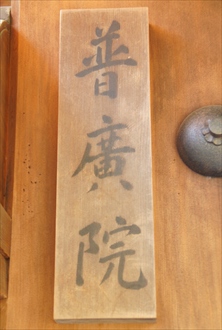 普廣院